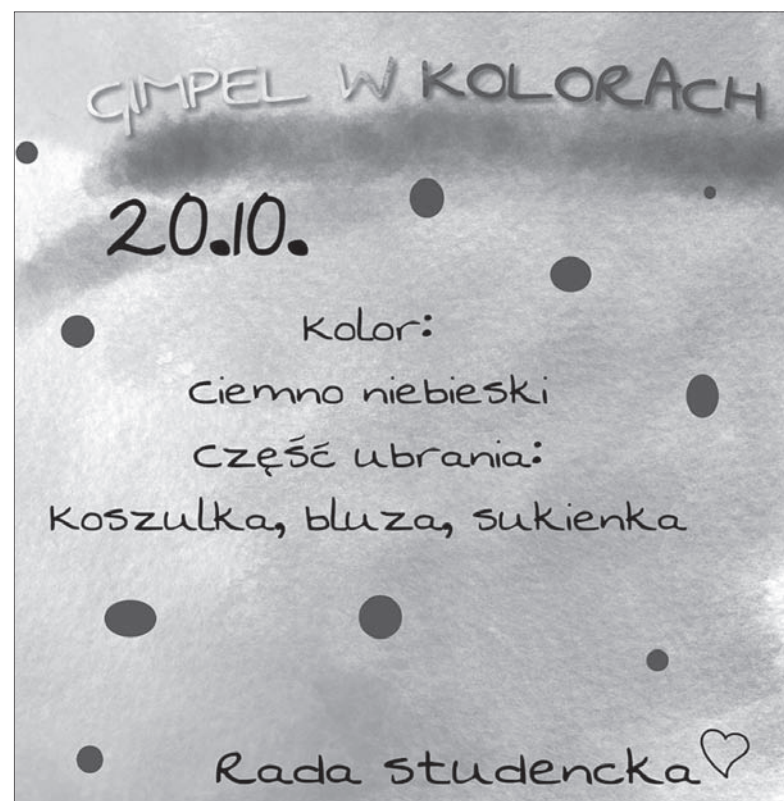 GIMPEL W KOLORACH
20.10.
Kolor:
ciemno niebieski
część ubrania:
koszulka, bluza, sukienka
Rada studencka